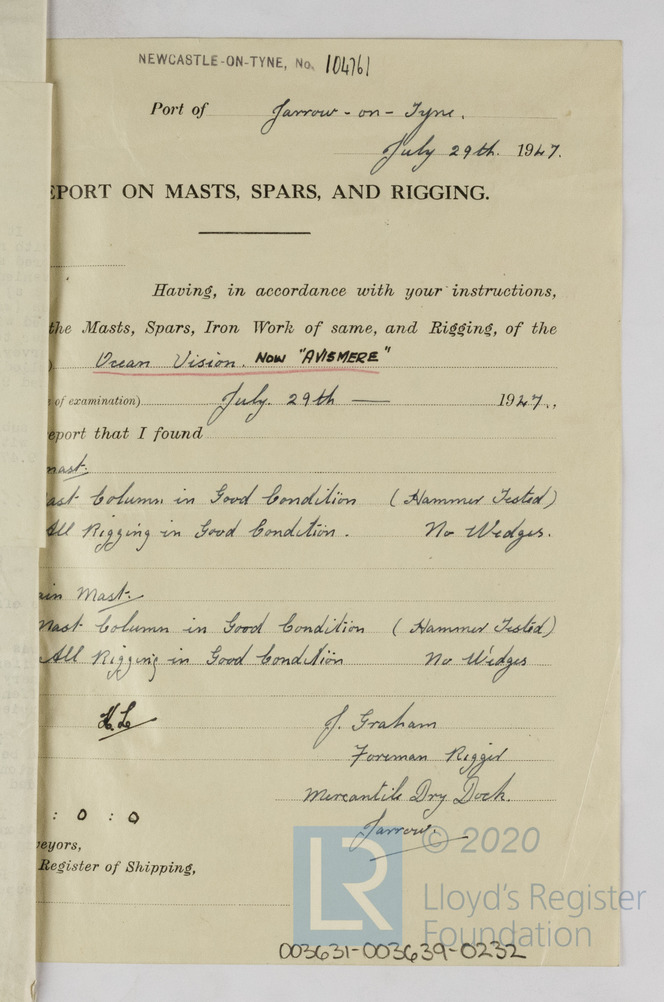 NEWCASTLE-ON-TYNE, No. 104761
Port of Jarrow-on-Tyne.
July 29th. 1947.
EPORT ON MASTS, SPARS, AND RIGGING.
Having, in accordance with your instructions,
the Masts, Spars, Iron Work of same, and Rigging, of the
) Ocean Vision. NOW "AVISMERE"
of examination) July. 29th — 1947.,
eport that I found
mast.
ast Column in Good Condition (Hammer Tested)
All Rigging in Good Condition. No Wedges.
ain Mast.
Mast Column in Good Condition (Hammer Tested)
All Rigging in Good Condition No Wedges
J. Graham
Foreman Rigger
Mercantile Dry Dock.
Jarrow.
: 0 : 0
veyors,
Register of Shipping,
LR
© 2020
Lloyd's Register
Foundation
003631-003639-0232